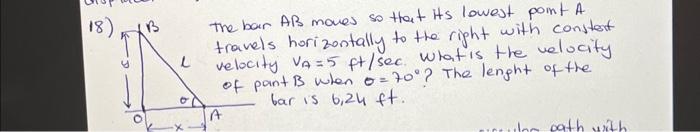 18) B The bar AB moves so that its lowest point A
L travels horizontally to the right with constant
velocity VA = 5 ft/sec. What is the velocity
of point B when θ = 70°? The lenght of the
O x A bar is 6,24 ft.
path with